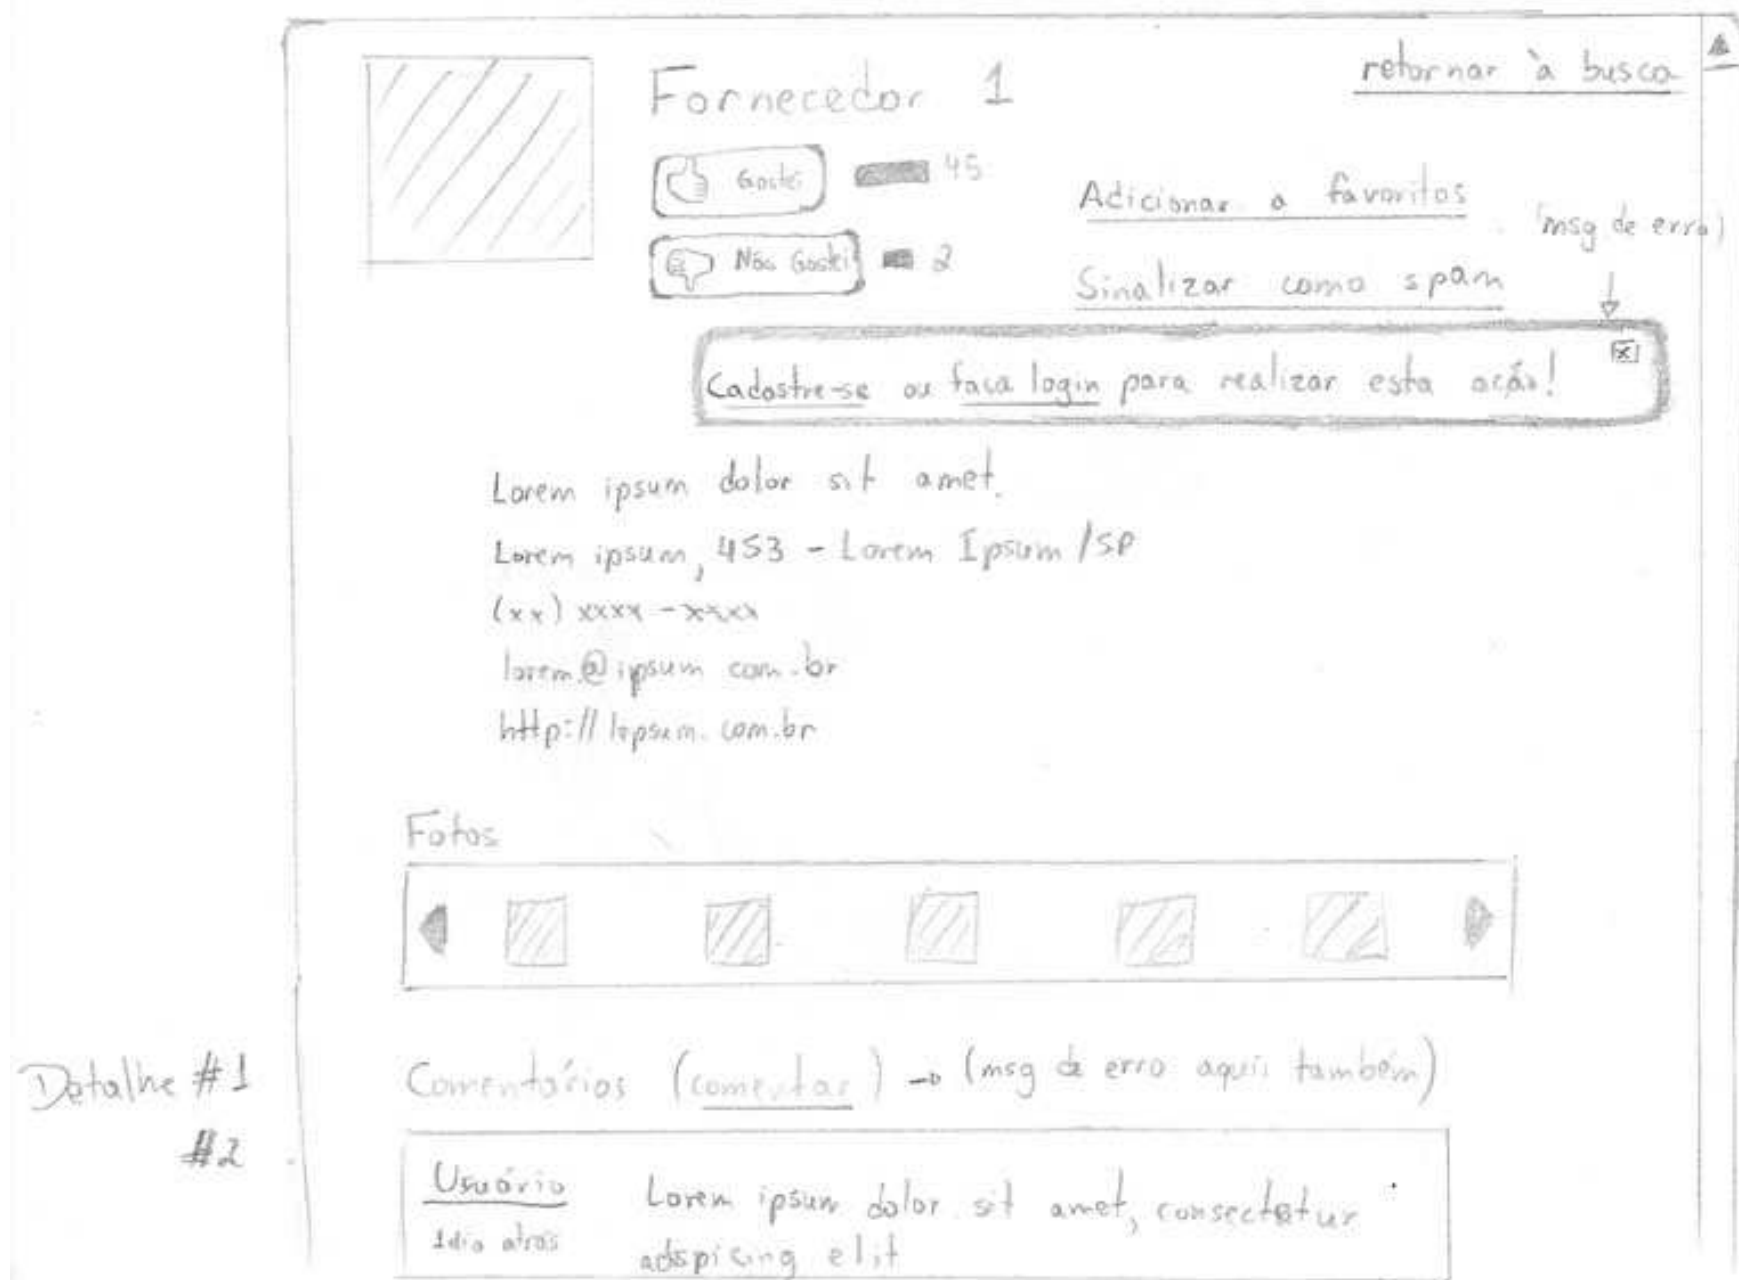 Fornecedor 1
retornar à busca
Gostei 45
Não Gostei 2
Adicionar a favoritos
(msg de erro)
Sinalizar como spam
x
Cadastre-se ou faça login para realizar esta ação!
Lorem ipsum dolor sit amet.
Lorem ipsum, 453 - Lorem Ipsum /SP
(xx) xxxx-xxxx
lorem@ipsum.com.br
http://lopsum.com.br
Fotos
Detalhe #1
#2
Comentários (comentar) → (msg de erro aqui também)
Usuário
1 dia atrás
Lorem ipsum dolor sit amet, consectetur
adspicing elit